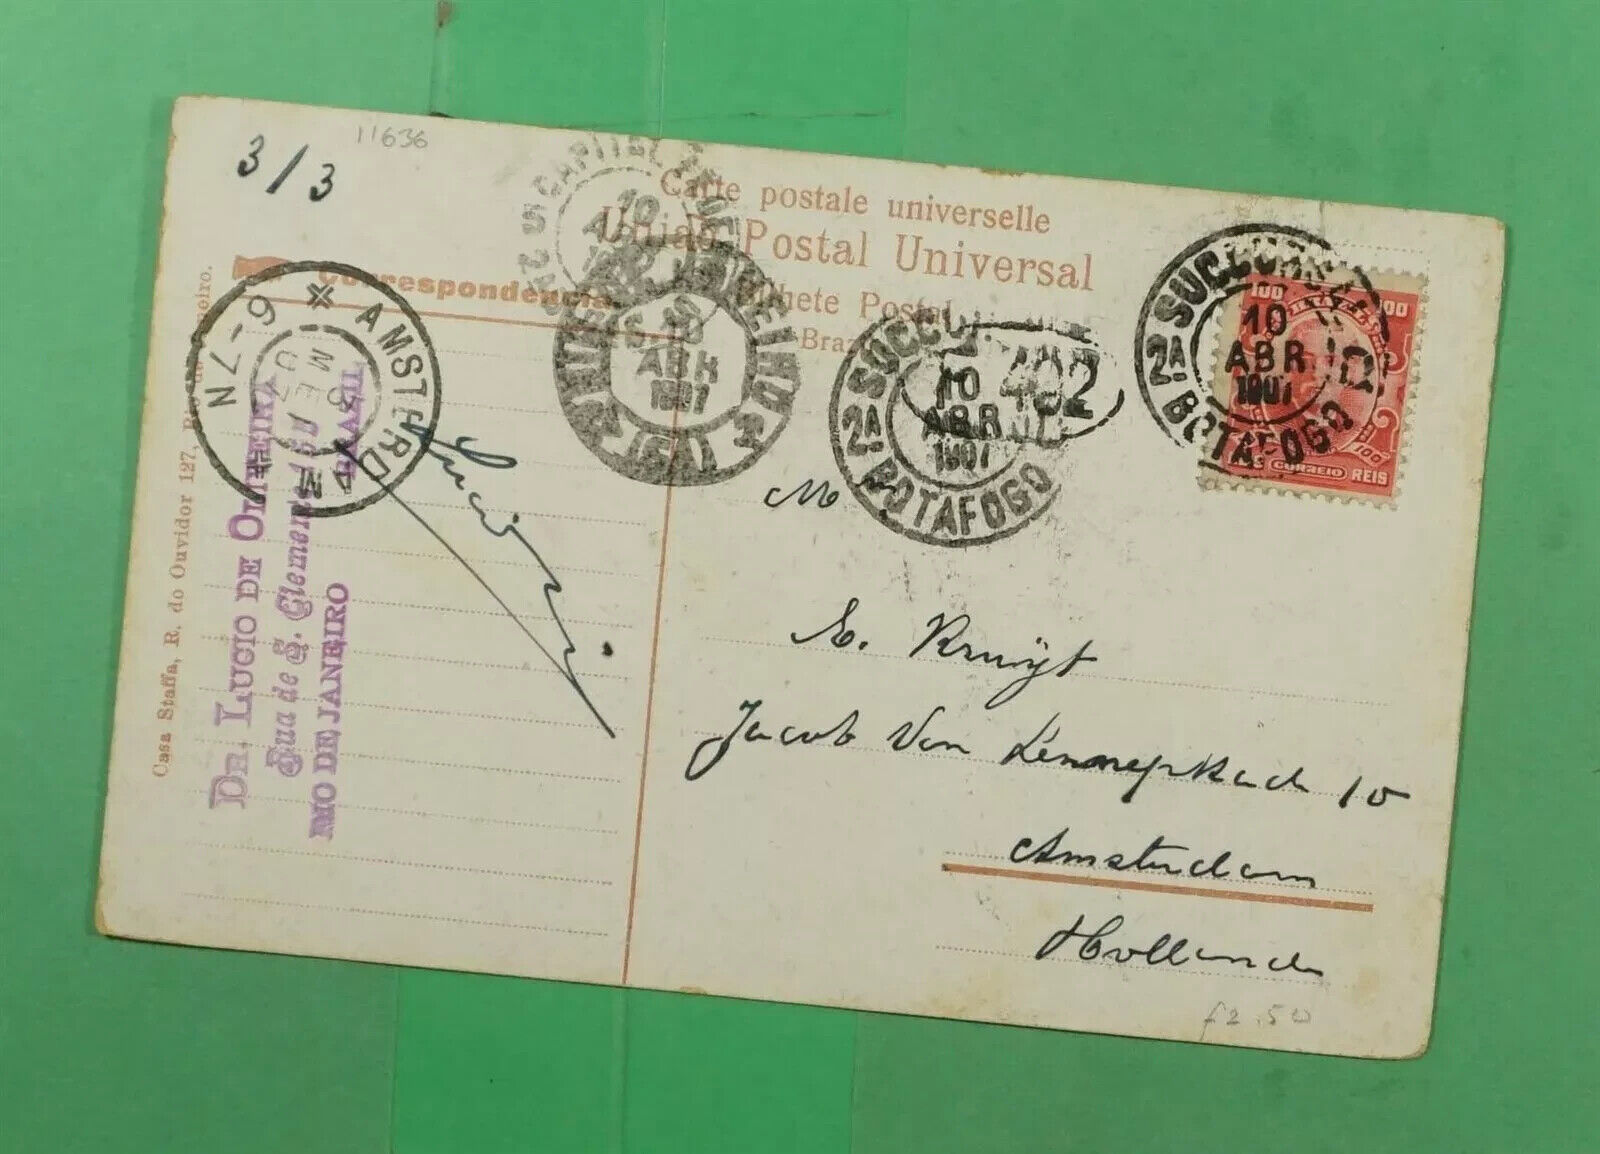 11636
3/3
Carte postale universelle
União Postal Universal
Bilhete Postal
Correspondencia
2ª SUCCURSAL
10
ABR
1907
BOTAFOGO
100 100
CORREIO REIS
2ª SUCC
10
ABR
1907
BOTAFOGO
492
CAPITAL
10
10
ABR
1907
AMSTERDAM
6-7N
DR. LUCIO DE OLIVEIRA
Rua de S. Clemente
RIO DE JANEIRO
BRAZIL
Casa Staffa, R. do Ouvidor 127, Rio de Janeiro.
M
E. Kruijt
Jacob Van Lennepkade 10
Amsterdam
Holland
f2.50